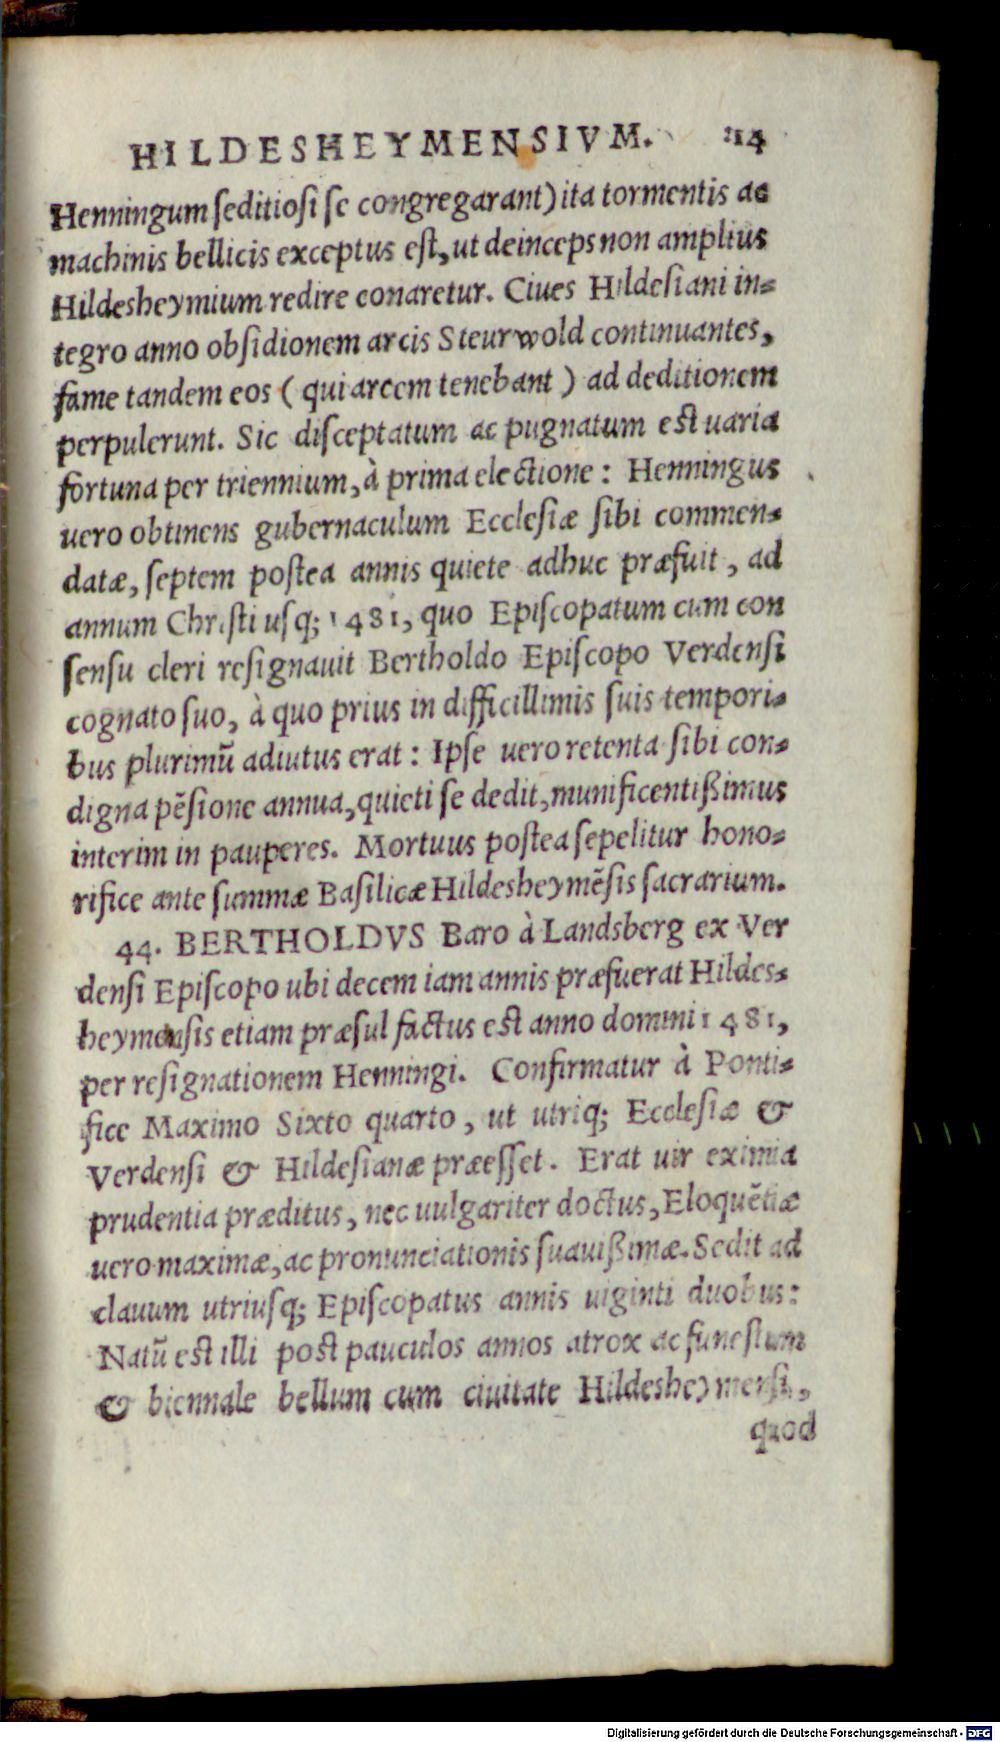 HILDESHEYMENSIVM. 214
Henningum seditiosi se congregarant) ita tormentis ac
machinis bellicis exceptus est, ut deinceps non amplius
Hildesheymium redire conaretur. Ciues Hildesiani in-
tegro anno obsidionem arcis Steurwold continuantes,
fame tandem eos (qui arcem tenebant) ad deditionem
perpulerunt. Sic disceptatum ac pugnatum est uaria
fortuna per triennium, à prima electione: Henningus
uero obtinens gubernaculum Ecclesiæ sibi commen-
datæ, septem postea annis quiete adhuc præfuit, ad
annum Christi usq; 1481, quo Episcopatum cum con
sensu cleri resignauit Bertholdo Episcopo Verdensi
cognato suo, à quo prius in difficillimis suis tempori-
bus plurimū adiutus erat: Ipse uero retenta sibi con-
digna pēsione annua, quieti se dedit, munificentißimus
interim in pauperes. Mortuus postea sepelitur hono-
rifice ante summæ Basilicæ Hildesheymēsis sacrarium.
44. BERTHOLDVS Baro à Landsberg ex Ver
densi Episcopo ubi decem iam annis præfuerat Hildes-
heymensis etiam præsul factus est anno domini 1481,
per resignationem Henningi. Confirmatur à Ponti-
fice Maximo Sixto quarto, ut utriq; Ecclesiæ &
Verdensi & Hildesianæ præesset. Erat uir eximia
prudentia præditus, nec uulgariter doctus, Eloquētiæ
uero maximæ, ac pronunciationis suauißimæ. Sedit ad
clauum utriusq; Episcopatus annis uiginti duobus:
Natū est illi post pauculos annos atrox ac funestum
& biennale bellum cum ciuitate Hildesheymensi,
quod
Digitalisierung gefördert durch die Deutsche Forschungsgemeinschaft - DFG